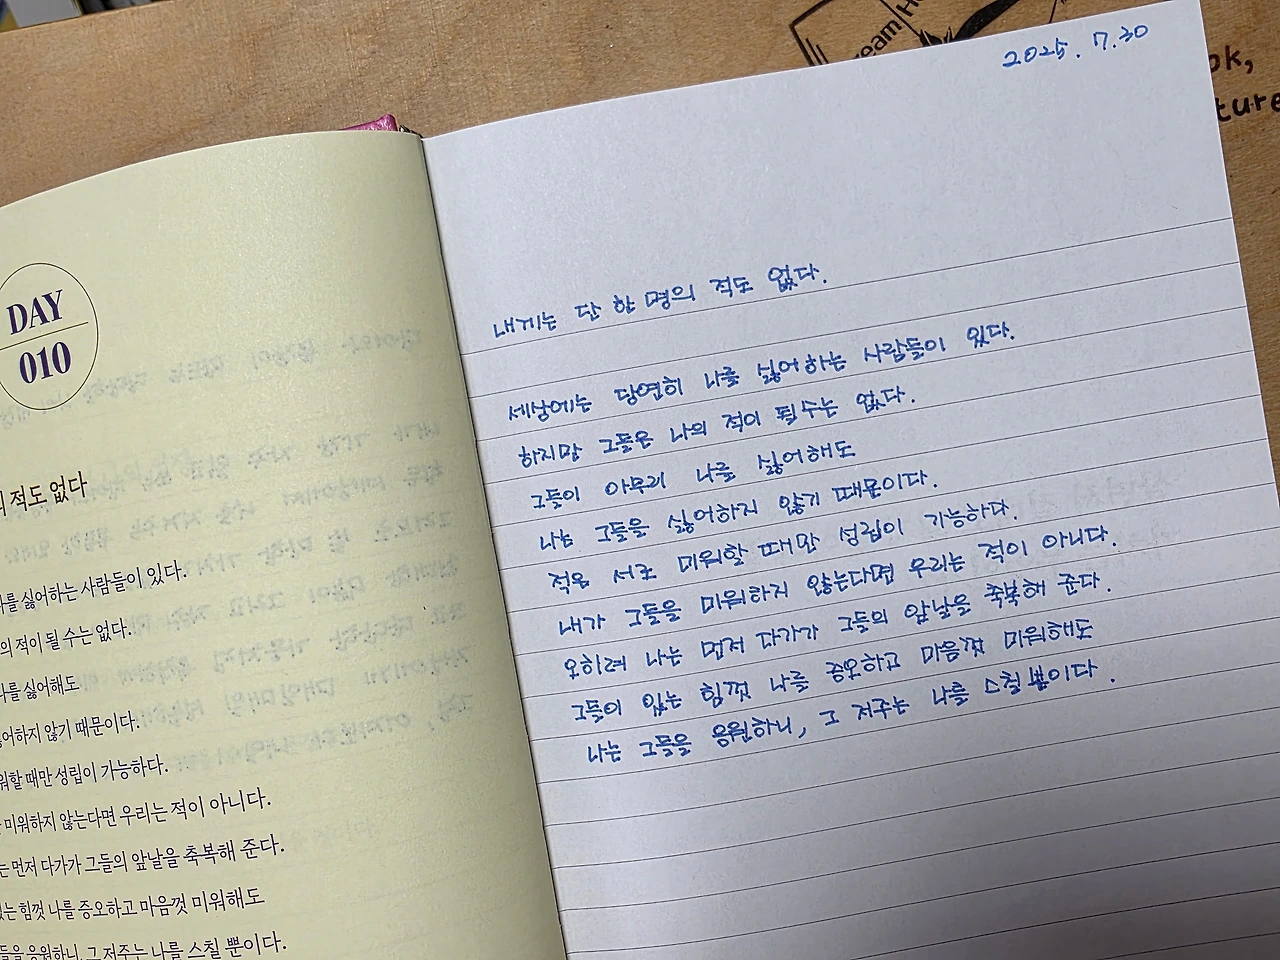 DAY
010
적도 없다
나를 싫어하는 사람들이 있다.
의 적이 될 수는 없다.
나를 싫어해도
하지 않기 때문이다.
때만 성립이 가능하다.
미워하지 않는다면 우리는 적이 아니다.
먼저 다가가 그들의 앞날을 축복해 준다.
있는 힘껏 나를 증오하고 마음껏 미워해도
응원하니, 그 저주는 나를 스칠 뿐이다.
2025. 7. 30
내게는 단 한 명의 적도 없다.
세상에는 당연히 나를 싫어하는 사람들이 있다.
하지만 그들은 나의 적이 될 수는 없다.
그들이 아무리 나를 싫어해도
나는 그들을 싫어하지 않기 때문이다.
적은 서로 미워할 때만 성립이 가능하다.
내가 그들을 미워하지 않는다면 우리는 적이 아니다.
오히려 나는 먼저 다가가 그들의 앞날을 축복해 준다.
그들이 있는 힘껏 나를 증오하고 마음껏 미워해도
나는 그들을 응원하니, 그 저주는 나를 스칠 뿐이다.